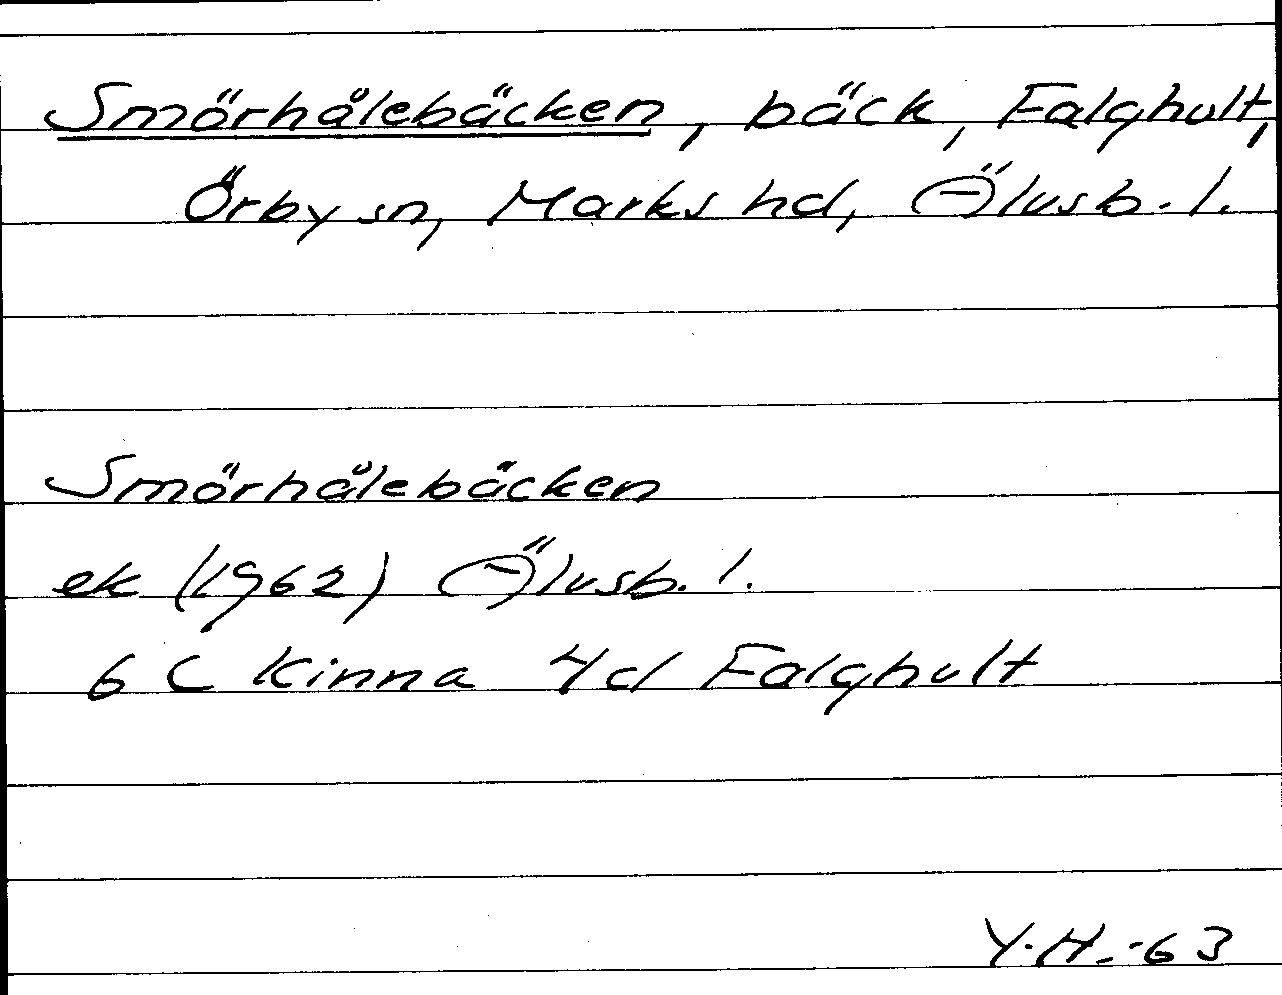 Smörhålebäcken, bäck, Falghult,
Örby sn, Marks hd, Älvsb. l.
Smörhålebäcken
ek (1962) Älvsb. l.
6 C Kinna 4d Falghult
Y.H.-63